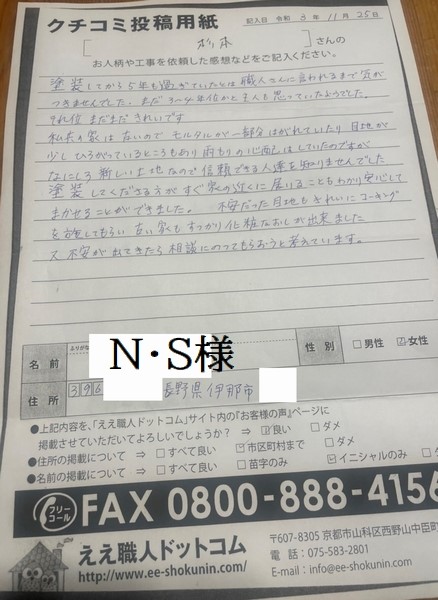 クチコミ投稿用紙
記入日 令和 3 年 11 月 25 日
[ 杉本 ] さんの
お人柄や工事を依頼した感想などをご記入ください。
塗装してから5年も過ぎていたとは職人さんに言われるまで気が
つきませんでした。まだ3〜4年位かと主人も思っていたようでした。
それ位まだまだきれいです
私共の家は古いので モルタルが一部分はがれていたり 目地が
少しひろがっているところもあり雨もりの心配はしていたのですが
なにしろ新しい土地なので信頼できる人達を知りませんでした
塗装してくださる方がすぐ家の近くに居いることもわかり安心して
まかせることができました。 不安だった目地もきれいにコーキング
を施してもらい古い家もすっかり化粧なおしが出来ました
又不安が出てきたら相談にのってもらおうと考えています。
ふりがな
名前
N・S様
性別
□男性 ☑女性
住所
396
長野県伊那市
●上記内容を、「ええ職人ドットコム」サイト内の『お客様の声』ページに
掲載させていただいてよろしいでしょうか? ⇒ ☑良い □ダメ
●住所の掲載について ⇒ □すべて良い ☑市区町村まで □ダメ
●名前の掲載について ⇒ □すべて良い □苗字のみ ☑イニシャルのみ
フリーコール
FAX 0800-888-4156
ええ職人ドットコム
http://www.ee-shokunin.com/
〒607-8305 京都市山科区西野山中臣町
電話:075-583-2801
E-mail:info@ee-shokunin.com